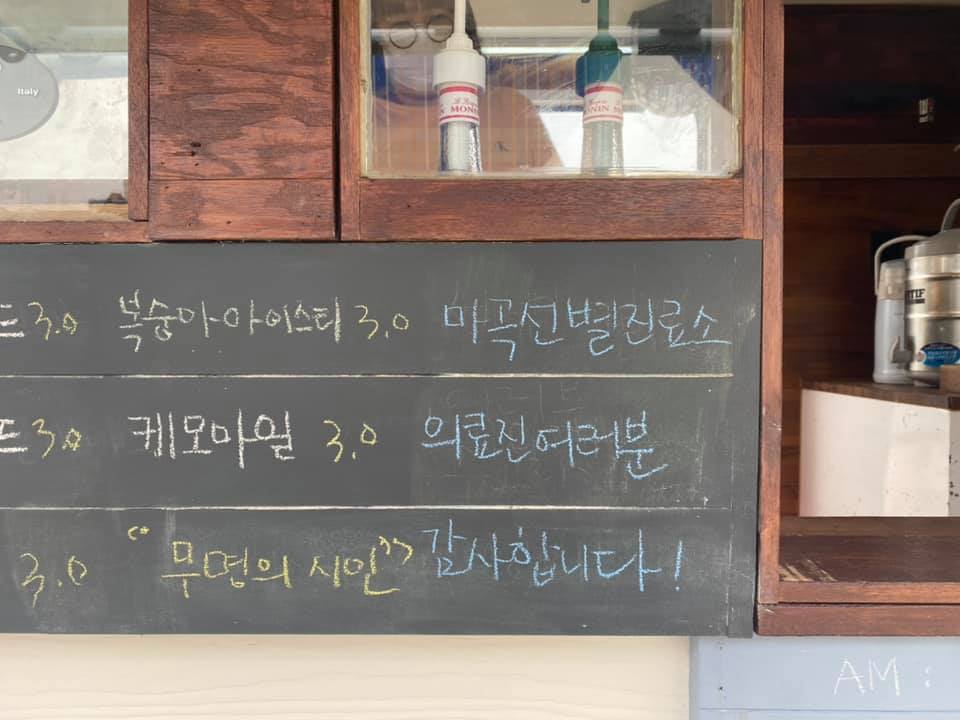 Italy
MONIN
ANIN
드 3.0 복숭아 아이스티 3.0 마곡선별진료소
드 3.0 케모마일 3.0 의료진 여러분
3.0 "무명의 시인" 감사합니다!
AM :